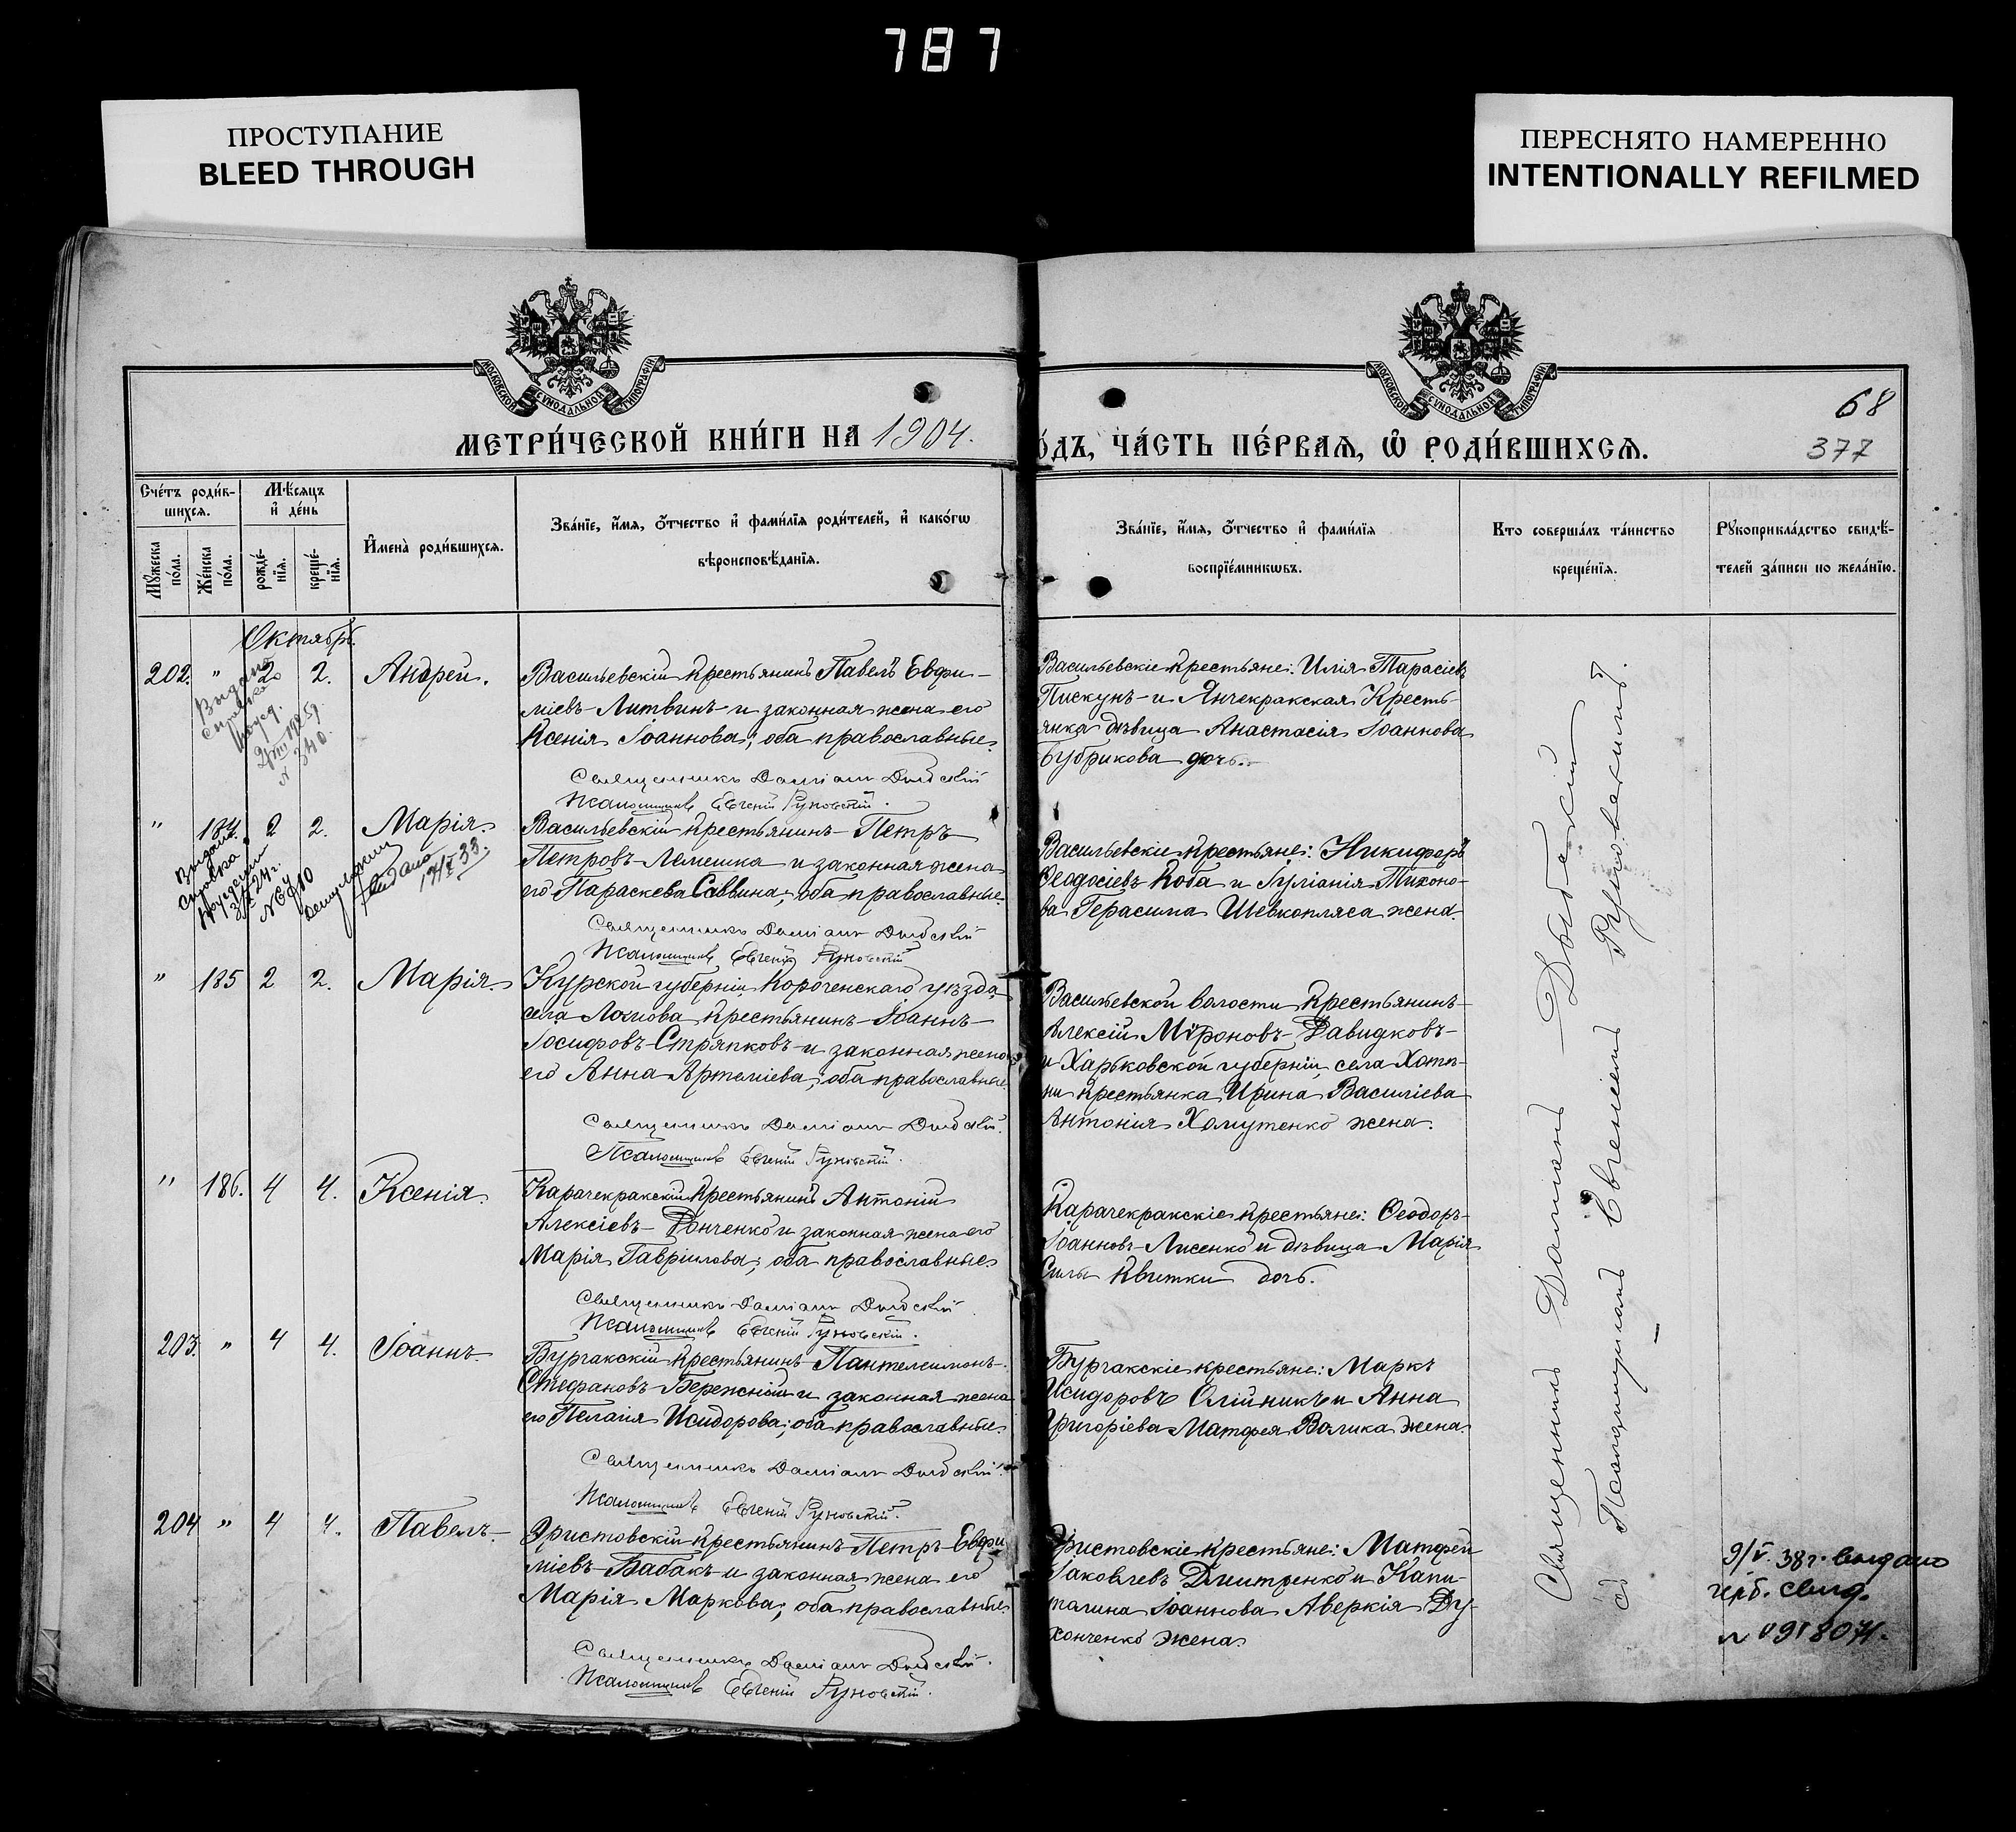 787
ПРОСТУПАНИЕ
BLEED THROUGH
ПЕРЕСНЯТО НАМЕРЕННО
INTENTIONALLY REFILMED
МОСКОВСКОЙ СѴНОДАЛЬНОЙ ТИПОГРАФІИ
МОСКОВСКОЙ СѴНОДАЛЬНОЙ ТИПОГРАФІИ
МЕТРИ́ЧЕСКОЙ КНИ́ГИ НА 1904.
О́ДЪ, ЧА́СТЬ ПЕ́РВАѦ, Ѡ҆ РОДИ́ВШИХСѦ.
68
377
Сче́тъ роди́в-
шихсѧ.
Мꙋ́жеска по́ла.
Же́нска по́ла.
Мѣ́сѧцъ
и҆ де́нь
рожде́-
нїѧ.
креще́-
нїѧ.
И҆мена̀ роди́вшихсѧ.
Зва́нїе, и҆́мѧ, ѻ҆́тчество и҆ фами́лїѧ роди́телей, и҆ како́гѡ
вѣроисповѣ́данїѧ.
Зва́нїе, и҆́мѧ, ѻ҆́тчество и҆ фами́лїѧ
воспрїе́мникѡвъ.
Кто совершáлъ та́инство
креще́нїѧ.
Рꙋкоприкла́дство свидѣ́-
телей за́писи по жела́нїю.
Октябрь.
202. " 2 2. Андрей.
Васильевскій крестьянинъ Павелъ Евфи-
міевъ Литвинъ и законная жена его
Ксенія Іоаннова; оба православные.
Священникъ Даміанъ
Псаломщикъ Евгеній Руновскій.
Васильевскіе крестьяне: Илія Тарасіевъ
Пискунъ и Янчекракская кресть-
янка дѣвица Анастасія Іоаннова
Бубрикова дочь.
Выдана
справка
" 184. 2 2. Марія.
Васильевскій крестьянинъ Петръ
Петровъ Лемешка и законная жена
его Параскева Саввина; оба православные.
Священникъ Даміанъ
Псаломщикъ Евгеній Руновскій
Васильевскіе крестьяне: Никифоръ
Ѳеодосіевъ Коба и Іуліанія Тихоно-
ва Герасима Шевкопляса жена.
Выдана
справка
" 185 2 2. Марія.
Курской губерніи, Короченскаго уѣзда,
села Крестьянинъ Іоаннъ
Іосифовъ Стряпковъ и законная жена
его Анна Артеміева; оба православные
Священникъ Даміанъ
Псаломщикъ Евгеній Руновскій.
Васильевской волости крестьянинъ
Алексій Мѵроновъ Давидковъ
и Харьковской губерніи, села Хотѣ-
ни крестьянка Ирина Василіева
Антонія Хомутенко жена.
" 186. 4 4. Ксенія.
Карачекракскій крестьянинъ Антоній
Алексіевъ Донченко и законная жена его
Марія Гавріилова; оба православные
Священникъ Даміанъ
Псаломщикъ Евгеній Руновскій.
Карачекракскіе крестьяне: Ѳеодоръ
Іоанновъ Лисенко и дѣвица Марія
Силы Квитки дочь.
203. " 4 4. Іоаннъ.
Бурчакскій крестьянинъ Пантелеимонъ
Стефановъ Бережній и законная жена
его Пелагія Исидорова; оба православные.
Священникъ Даміанъ
Псаломщикъ Евгеній Руновскій.
Бурчакскіе крестьяне: Маркъ
Исидоровъ Олійникъ и Анна
Григоріева Матфея Волика жена.
204 " 4 4. Павелъ.
Эристовскій крестьянинъ Петръ Евфи-
міевъ Бабакъ и законная жена его
Марія Маркова; оба православные.
Священникъ Даміанъ
Псаломщикъ Евгеній Руновскій.
Эристовскіе крестьяне: Матфей
Іаковлевъ Дмитренко и Капи-
толина Іоаннова Аверкія Ду-
хонченко жена.
Священникъ Даміанъ
съ Псаломщикомъ Евгеніемъ Руновскимъ.
9/V. 38 г. выдано
герб. свид.